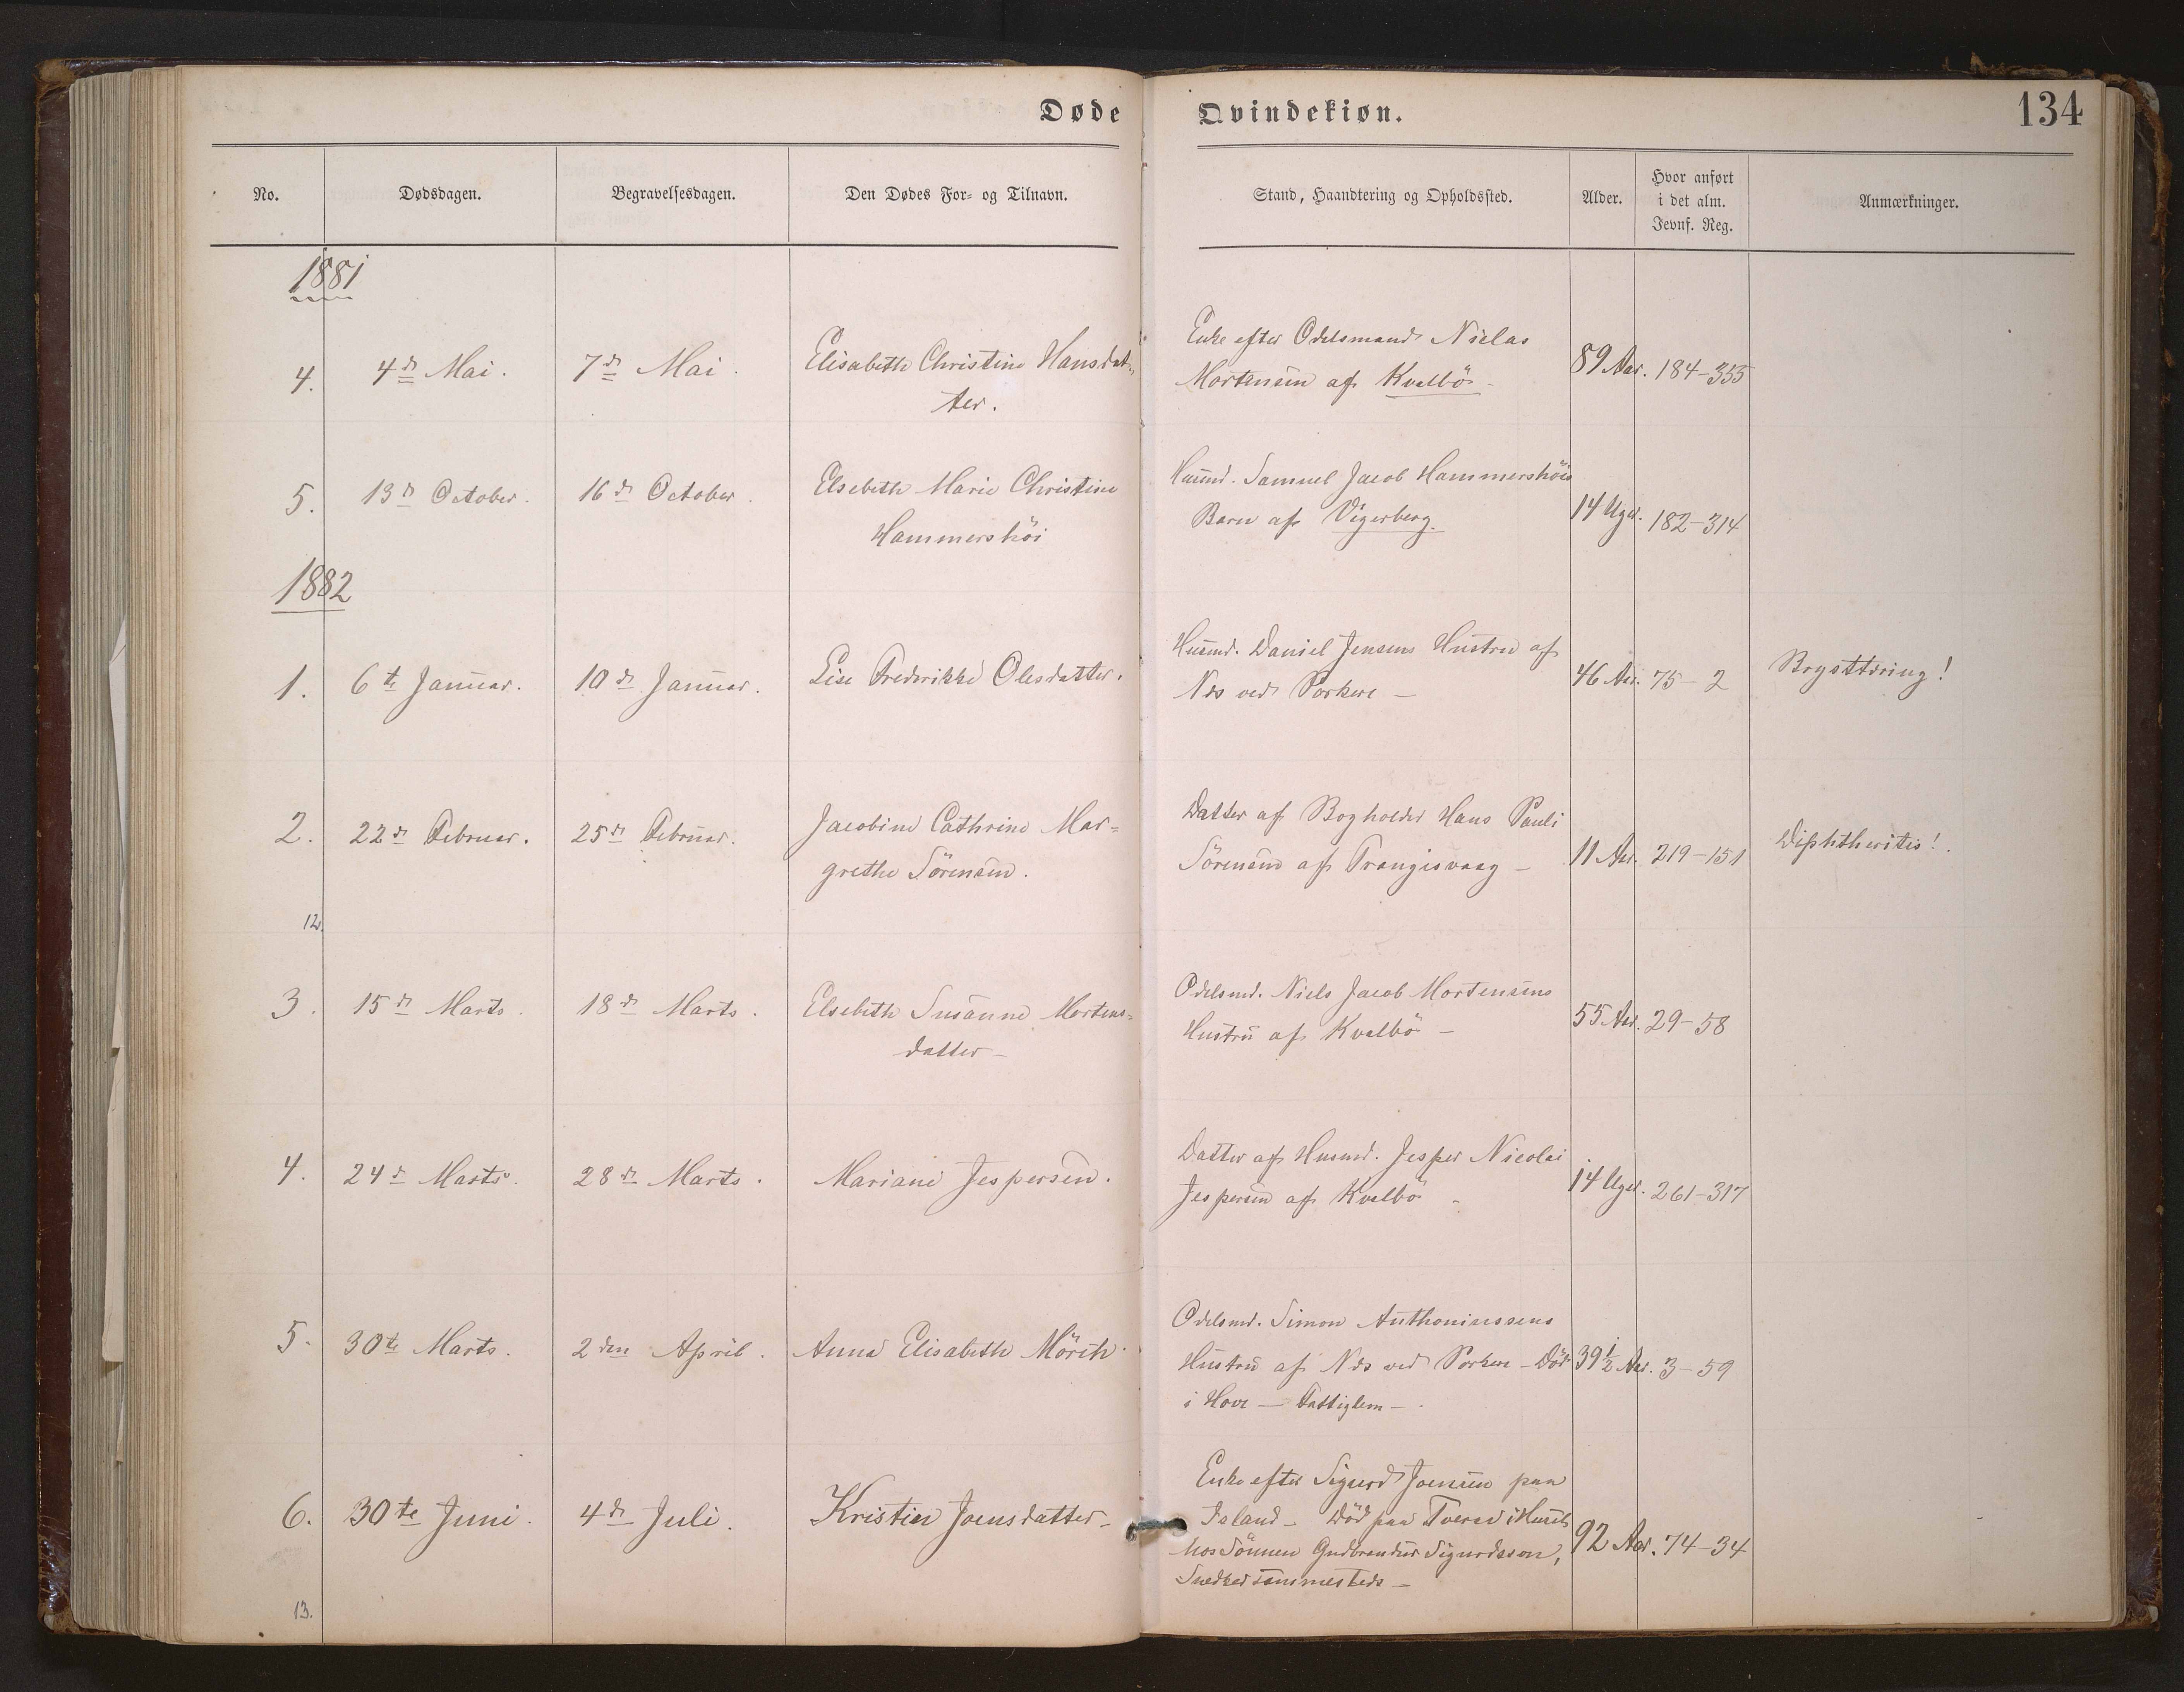 Døde Qvindekiøn.
134
No. Dødsdagen. Begravelsesdagen. Den Dødes For- og Tilnavn. Stand, Haandtering og Opholdssted. Alder. Hvor anført i det alm. Jevnf. Reg. Anmærkninger.
1881
4. 4de Mai. 7de Mai. Elisabeth Christine Hansdat-
ter.
Enke efter Odelsmand Niclas
Mortensen af Kvalbö -
89 Aar. 184-355
5. 13de October. 16de October. Elsebeth Marie Christine
Hammershöi
Huusmd. Samuel Jacob Hammershöis
Barn af Vigerberg.
14 Uger. 182-314
1882
1. 6te Januar. 10de Januar. Lise Frederikke Olesdatter.
Husmd. Daniel Jensens Hustru af
Næs ved Porkere -
46 Aar. 75-2
Brysttæring!
2. 22de Februar. 25de Februar. Jacobine Cathrine Mar=
grethe Sörensen.
Datter af Bogholder Hans Pauli
Sörensen af Trangisvaag -
11 Aar. 219-151
Diphtheritis!
12.
3. 15de Marts. 18de Marts. Elsebeth Susanne Mortens=
datter -
Odelsmd. Niels Jacob Mortensens
Hustru af Kvalbö -
55 Aar. 29-58
4. 24de Marts. 28de Marts. Mariane Jespersen.
Datter af Husmd. Jesper Nicolai
Jespersen af Kvalbö -
14 Uger. 261-317
5. 30te Marts. 2den April. Anna Elisabeth Mörch.
Odelsmd. Simon Anthoniussens
Hustru af Næs ved Porkere - Död
i Hove - Fattiglem -
39 1/2 Aar. 3-59
6. 30te Juni. 4de Juli. Kristin Joensdatter -
Enke efter Sigurd Joensen paa
Island - Död paa Tveraa i Huset
hos Sönnen Gudbrandur Sigurdsson,
Snedker sammesteds -
92 Aar. 74-34
13.